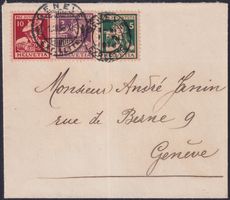 10
5
HELVETIA HELVETIA HELVETIA
GENÈVE
Monsieur André Janin
rue de Berne 9
Genève